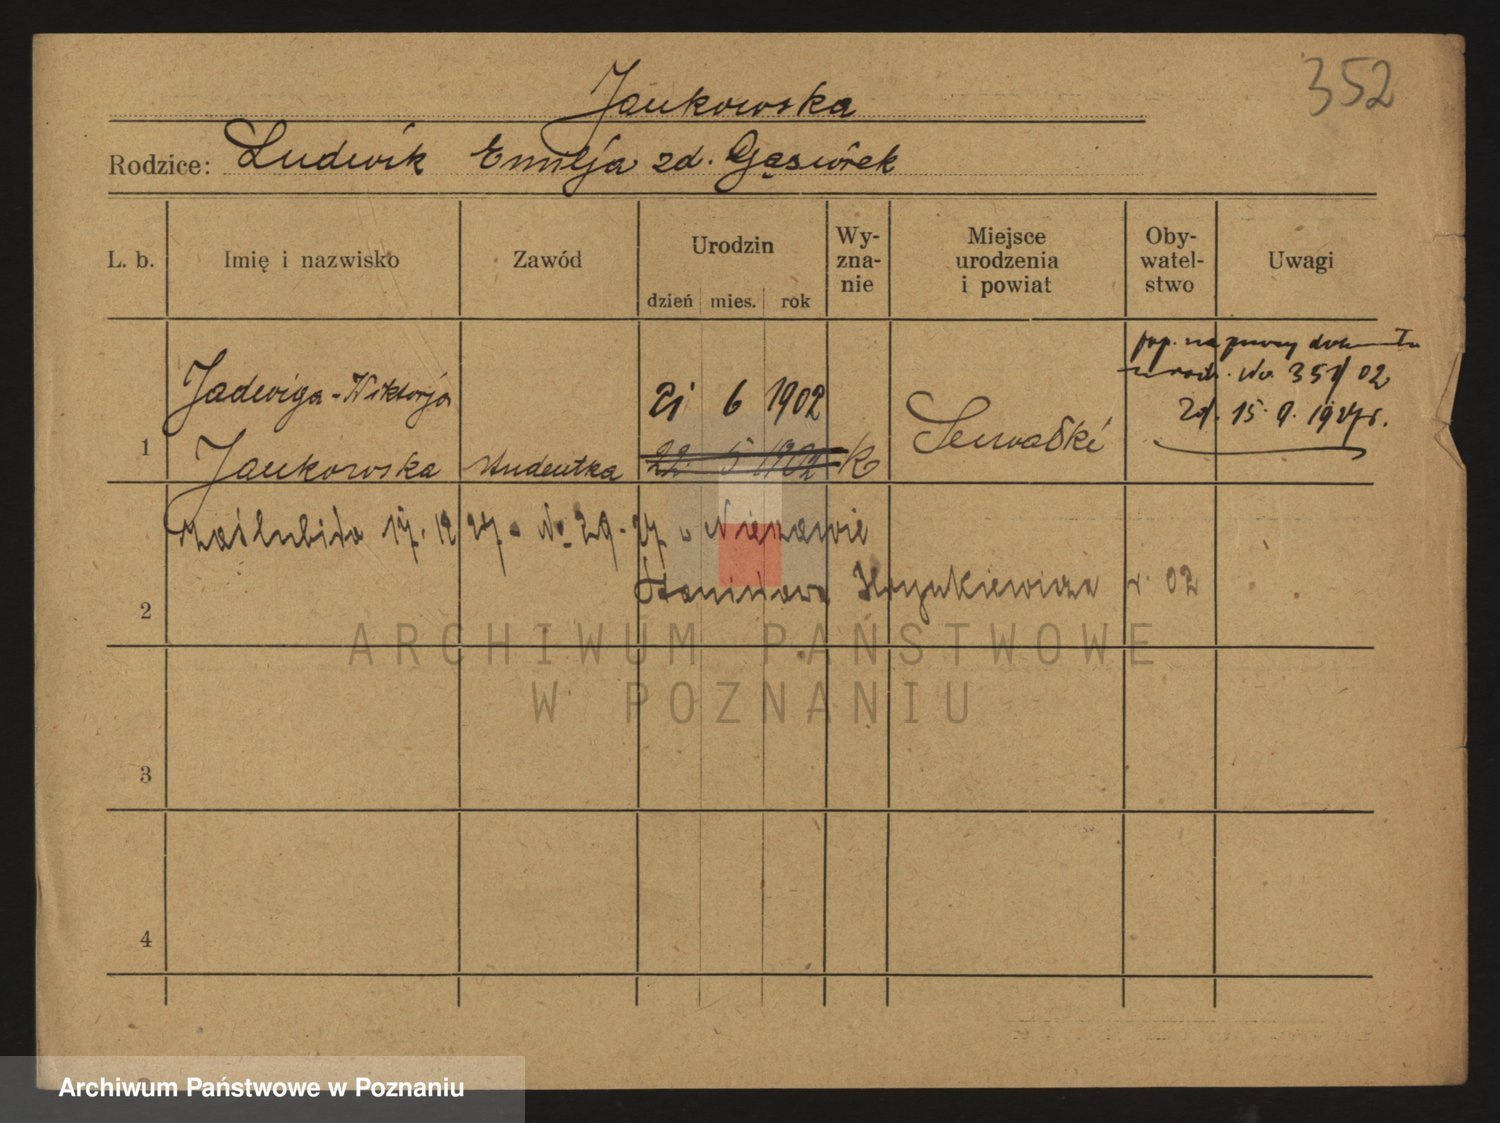 352
Jankowska
Rodzice: Ludwik Emilja zd. Gąsiorek
L. b. Imię i nazwisko Zawód Urodzin dzień mies. rok Wy-zna-nie Miejsce urodzenia i powiat Oby-watel-stwo Uwagi
pop. na dok
urodz. No 351/02
15. 9. 1927 r.
Jadwiga-Wiktorja 21 6 1902
1 Jankowska studentka 22 5 1902 K Suwałki
zaślubiła 17. 12 27 No 29-27 w
2 Stanisława r. 02
3
4
ARCHIWUM PAŃSTWOWE
W POZNANIU
Archiwum Państwowe w Poznaniu